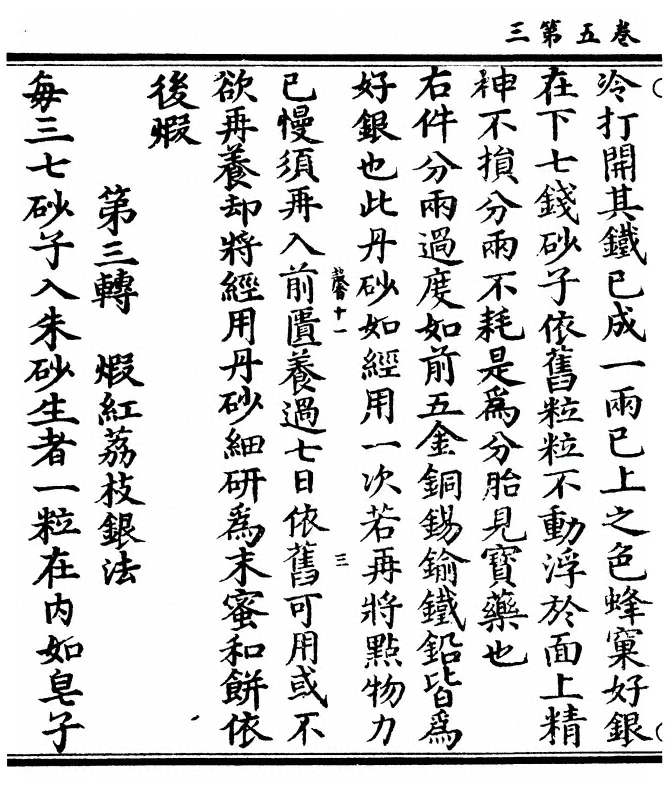 卷五第三
冷打開其鐵已成一兩已上之色蜂窠好銀
在下七錢砂子依舊粒粒不動浮於面上精
神不損分兩不耗是爲分胎見寶藥也
右件分兩過度如前五金銅錫鍮鐵鉛皆爲
好銀也此丹砂如經用一次若再將點物力
已慢須再入前匱養過七日依舊可用或不
馨十一
三
欲再養却將經用丹砂細研爲末蜜和餅依
後煆
第三轉 煆紅荔枝銀法
每三七砂子入朱砂生者一粒在内如皂子